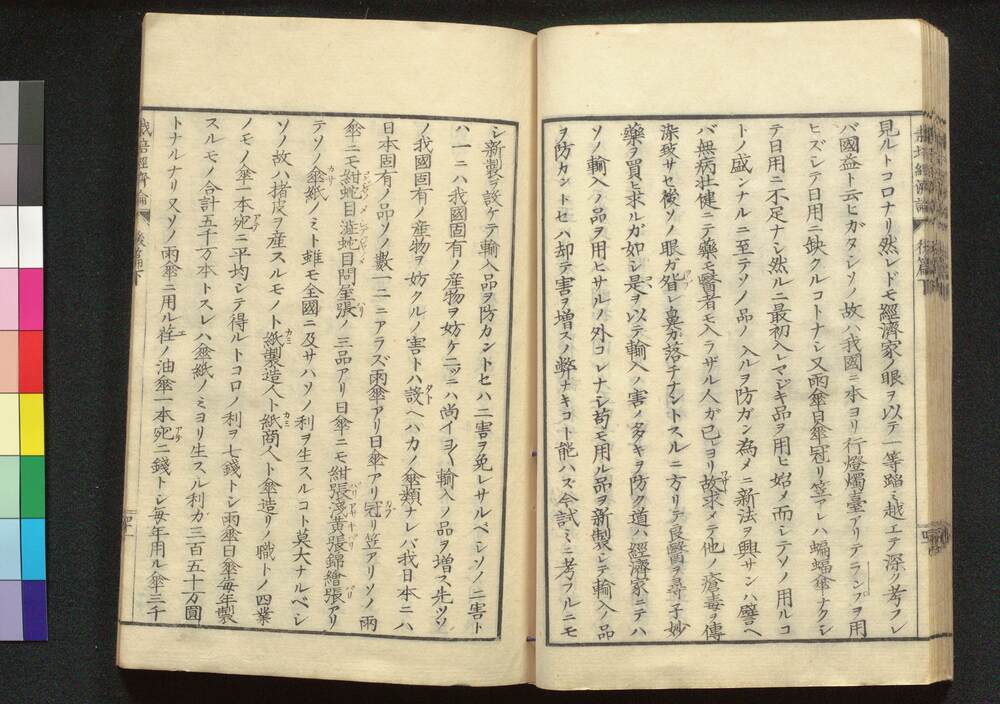 見ルトコロナリ然レドモ經濟家ノ眼ヲ以テ一等踰ミ越エテ深ク考フレ
バ國益ト云ヒガタシソノ故ハ我國ニ本ヨリ行燈燭臺アリテランプヲ用
ヒズシテ日用ニ缺クルコトナシ又雨傘日傘冠リ笠アレハ蝙蝠傘ナクシ
テ日用ニ不足ナシ然ルニ最初入レマジキ品ヲ用ヒ始メ而シテソノ用ルコ
トノ盛ンナルニ至テソノ品ノ入ルヲ防ガン為メニ新法ヲ興サンハ譬ヘ
バ無病壮健ニテ藥モ醫者モ入ラザル人ガ已ヨリ故求メテ他ノ瘡毒ヲ傳
染致サセ後ソノ眼ガ皆レ鼻ガ落チナントスルニ方リテ良醫ヲ尋子妙
藥ヲ買ヒ求ルガ如シ是ヲ以テ輸入ノ害ノ多キヲ防ク道ハ經濟家ニテハ
ソノ輸入ノ品ヲ用ヒサルノ外コレナシ苟モ用ル品ヲ新製シテ輸入ノ品
ヲ防カントセハ却テ害ヲ増スノ弊ナキコト能ハズ今試ミニ考フルニモ
シ新製ヲ設ケテ輸入品ヲ防カントセハ二害ヲ免レサルベシソノ二害ト
ハ一ニハ我國固有ノ産物ヲ妨ケ二ツニハ尚イヨ〱輸入ノ品ヲ増ス先ツソ
ノ我國固有ノ産物ヲ妨クルノ害トハ設ヘハカノ傘類ナレバ我日本ニハ
日本固有ノ品ソノ數一二ニアラズ雨傘アリ日傘アリ冠リ笠アリソノ雨
傘ニモ紺蛇目澁蛇目問屋張ノ三品アリ日傘ニモ紺張淺黄張錦繪張アリ
テソノ傘紙ノミト雖モ全國ニ及サハソノ利ヲ生スルコト莫大ナルベシ
ソノ故ハ楮皮ヲ産スルモノト紙製造人ト紙商人ト傘造リノ職トノ四業
ノモノ傘一本宛ニ平均シテ得ルトコロノ利ヲ七錢トシ雨傘日傘毎年製
スルモノ合計五千万本トスレハ傘紙ノミヨリ生スル利カ三百五十万圓
トナルナリ又ソノ雨傘ニ用ル荏ノ油傘一本宛二錢トシ毎年用ル傘三千
栽培經濟論
後篇下